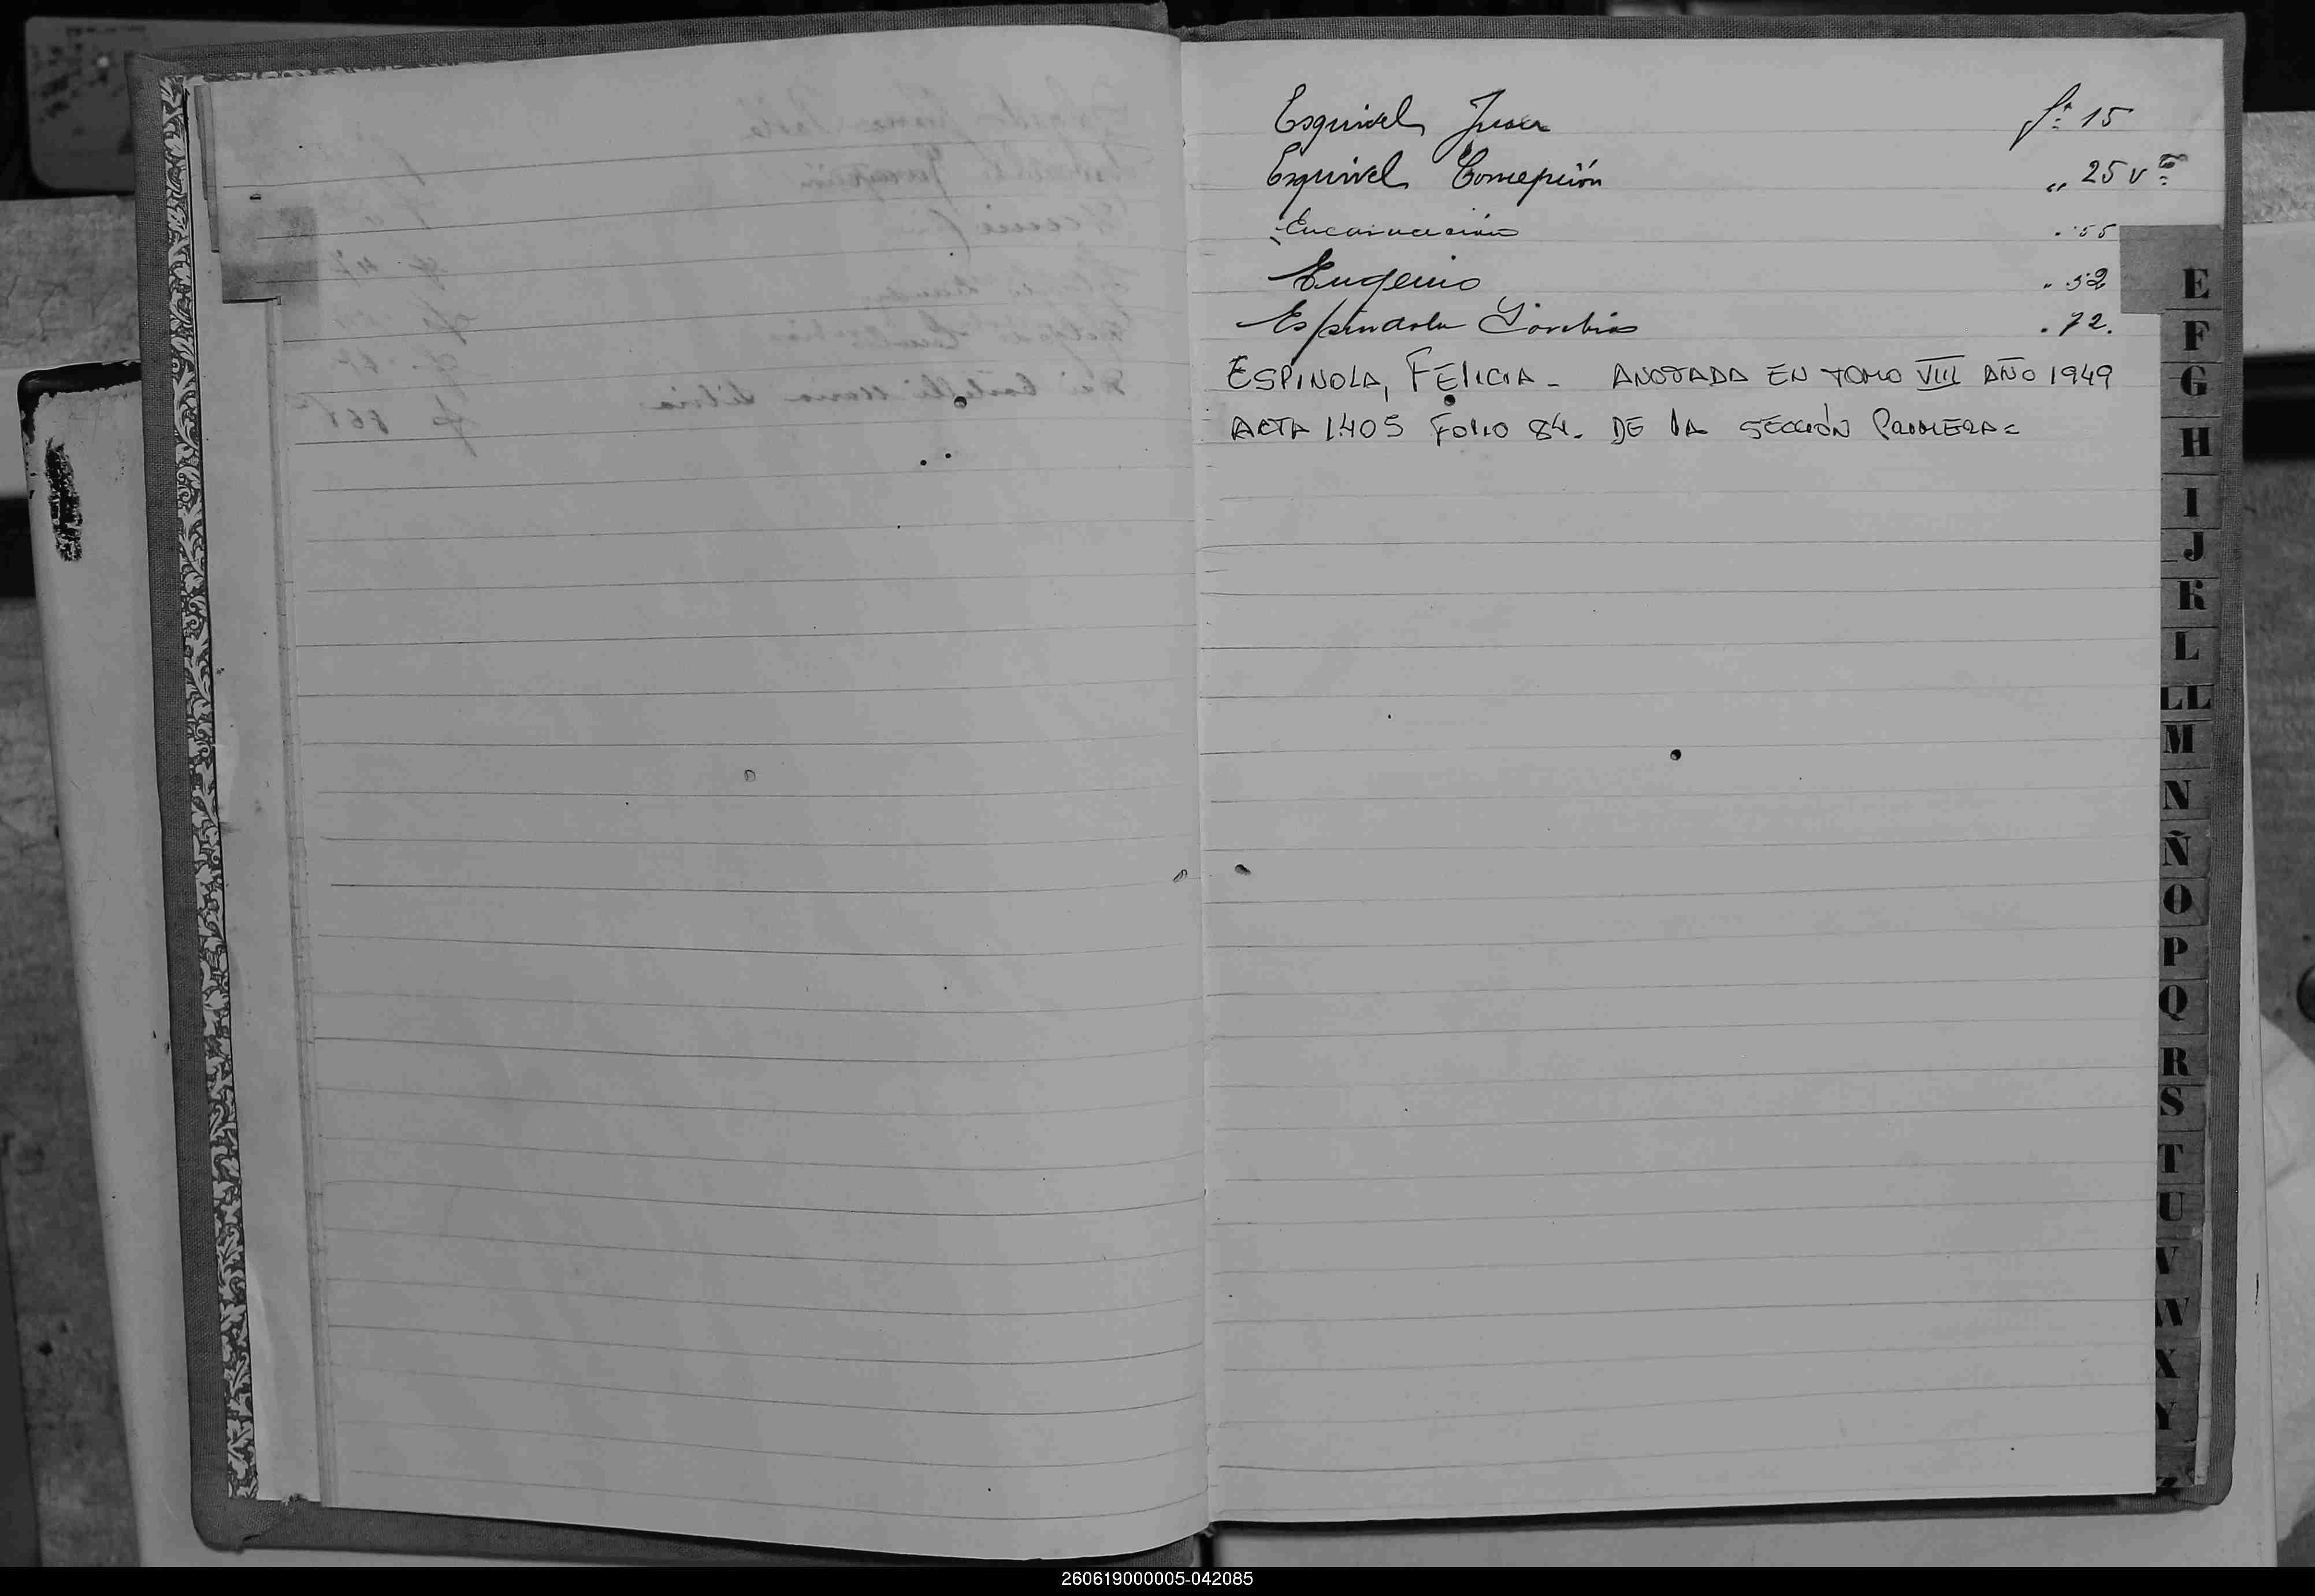 Esquivel, Juan fº 15
Esquivel, Concepción „ 25 vº
Encarnación „ 55
Eugenio „ 52
Espindola . 72.
ESPINOLA, FELICIA - ANOTADA EN TOMO VIII AÑO 1949
ACTA 1405 FOLIO 84. DE LA SECCIÓN PRIMERA =
E
F
G
H
I
J
K
L
LL
M
N
Ñ
O
P
Q
R
S
T
U
V
W
X
Y
Z
260619000005-042085